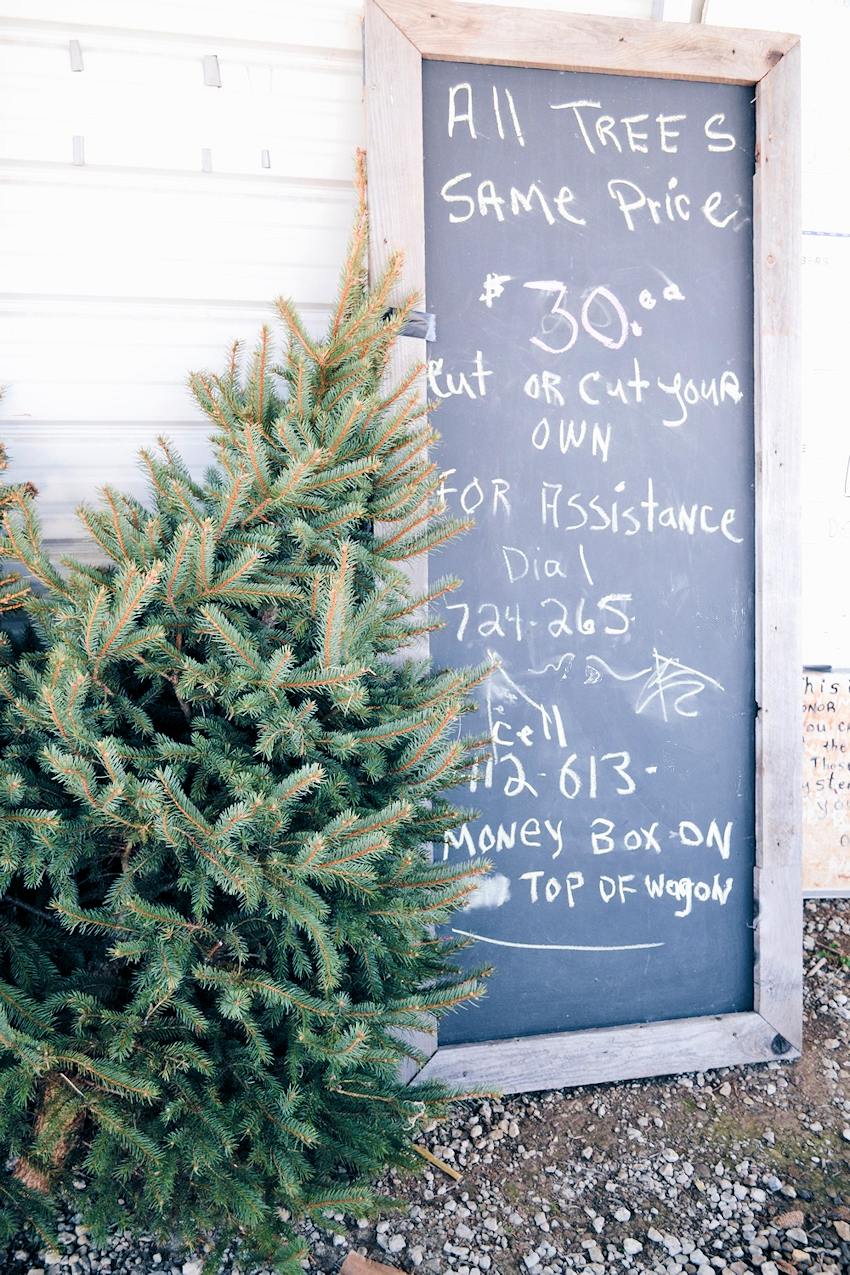 All TREES
SAMe Price
$30.ea
cut OR cut youR
OWN
FOR Assistance
Dial
724-265-
cell
412-613-
MONey BOX ON
TOP OF WagoN